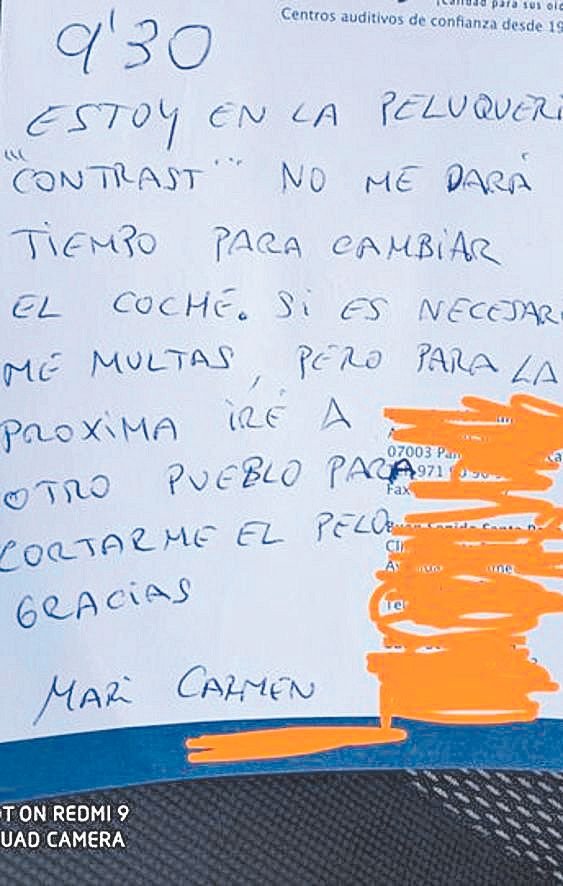 ¡Calidad para sus oíd
Centros auditivos de confianza desde 19
9'30
ESTOY EN LA PELUQUERI
"CONTRAST" NO ME DARÁ
TIEMPO PARA CAMBIAR
EL COCHE. SI ES NECESARI
ME MULTAS, PERO PARA LA
PROXIMA IRÉ A
07003 Pal
OTRO PUEBLO PARA
971
Fax
CORTARME EL PELO
GRACIAS
MARI CARMEN
T ON REDMI 9
UAD CAMERA